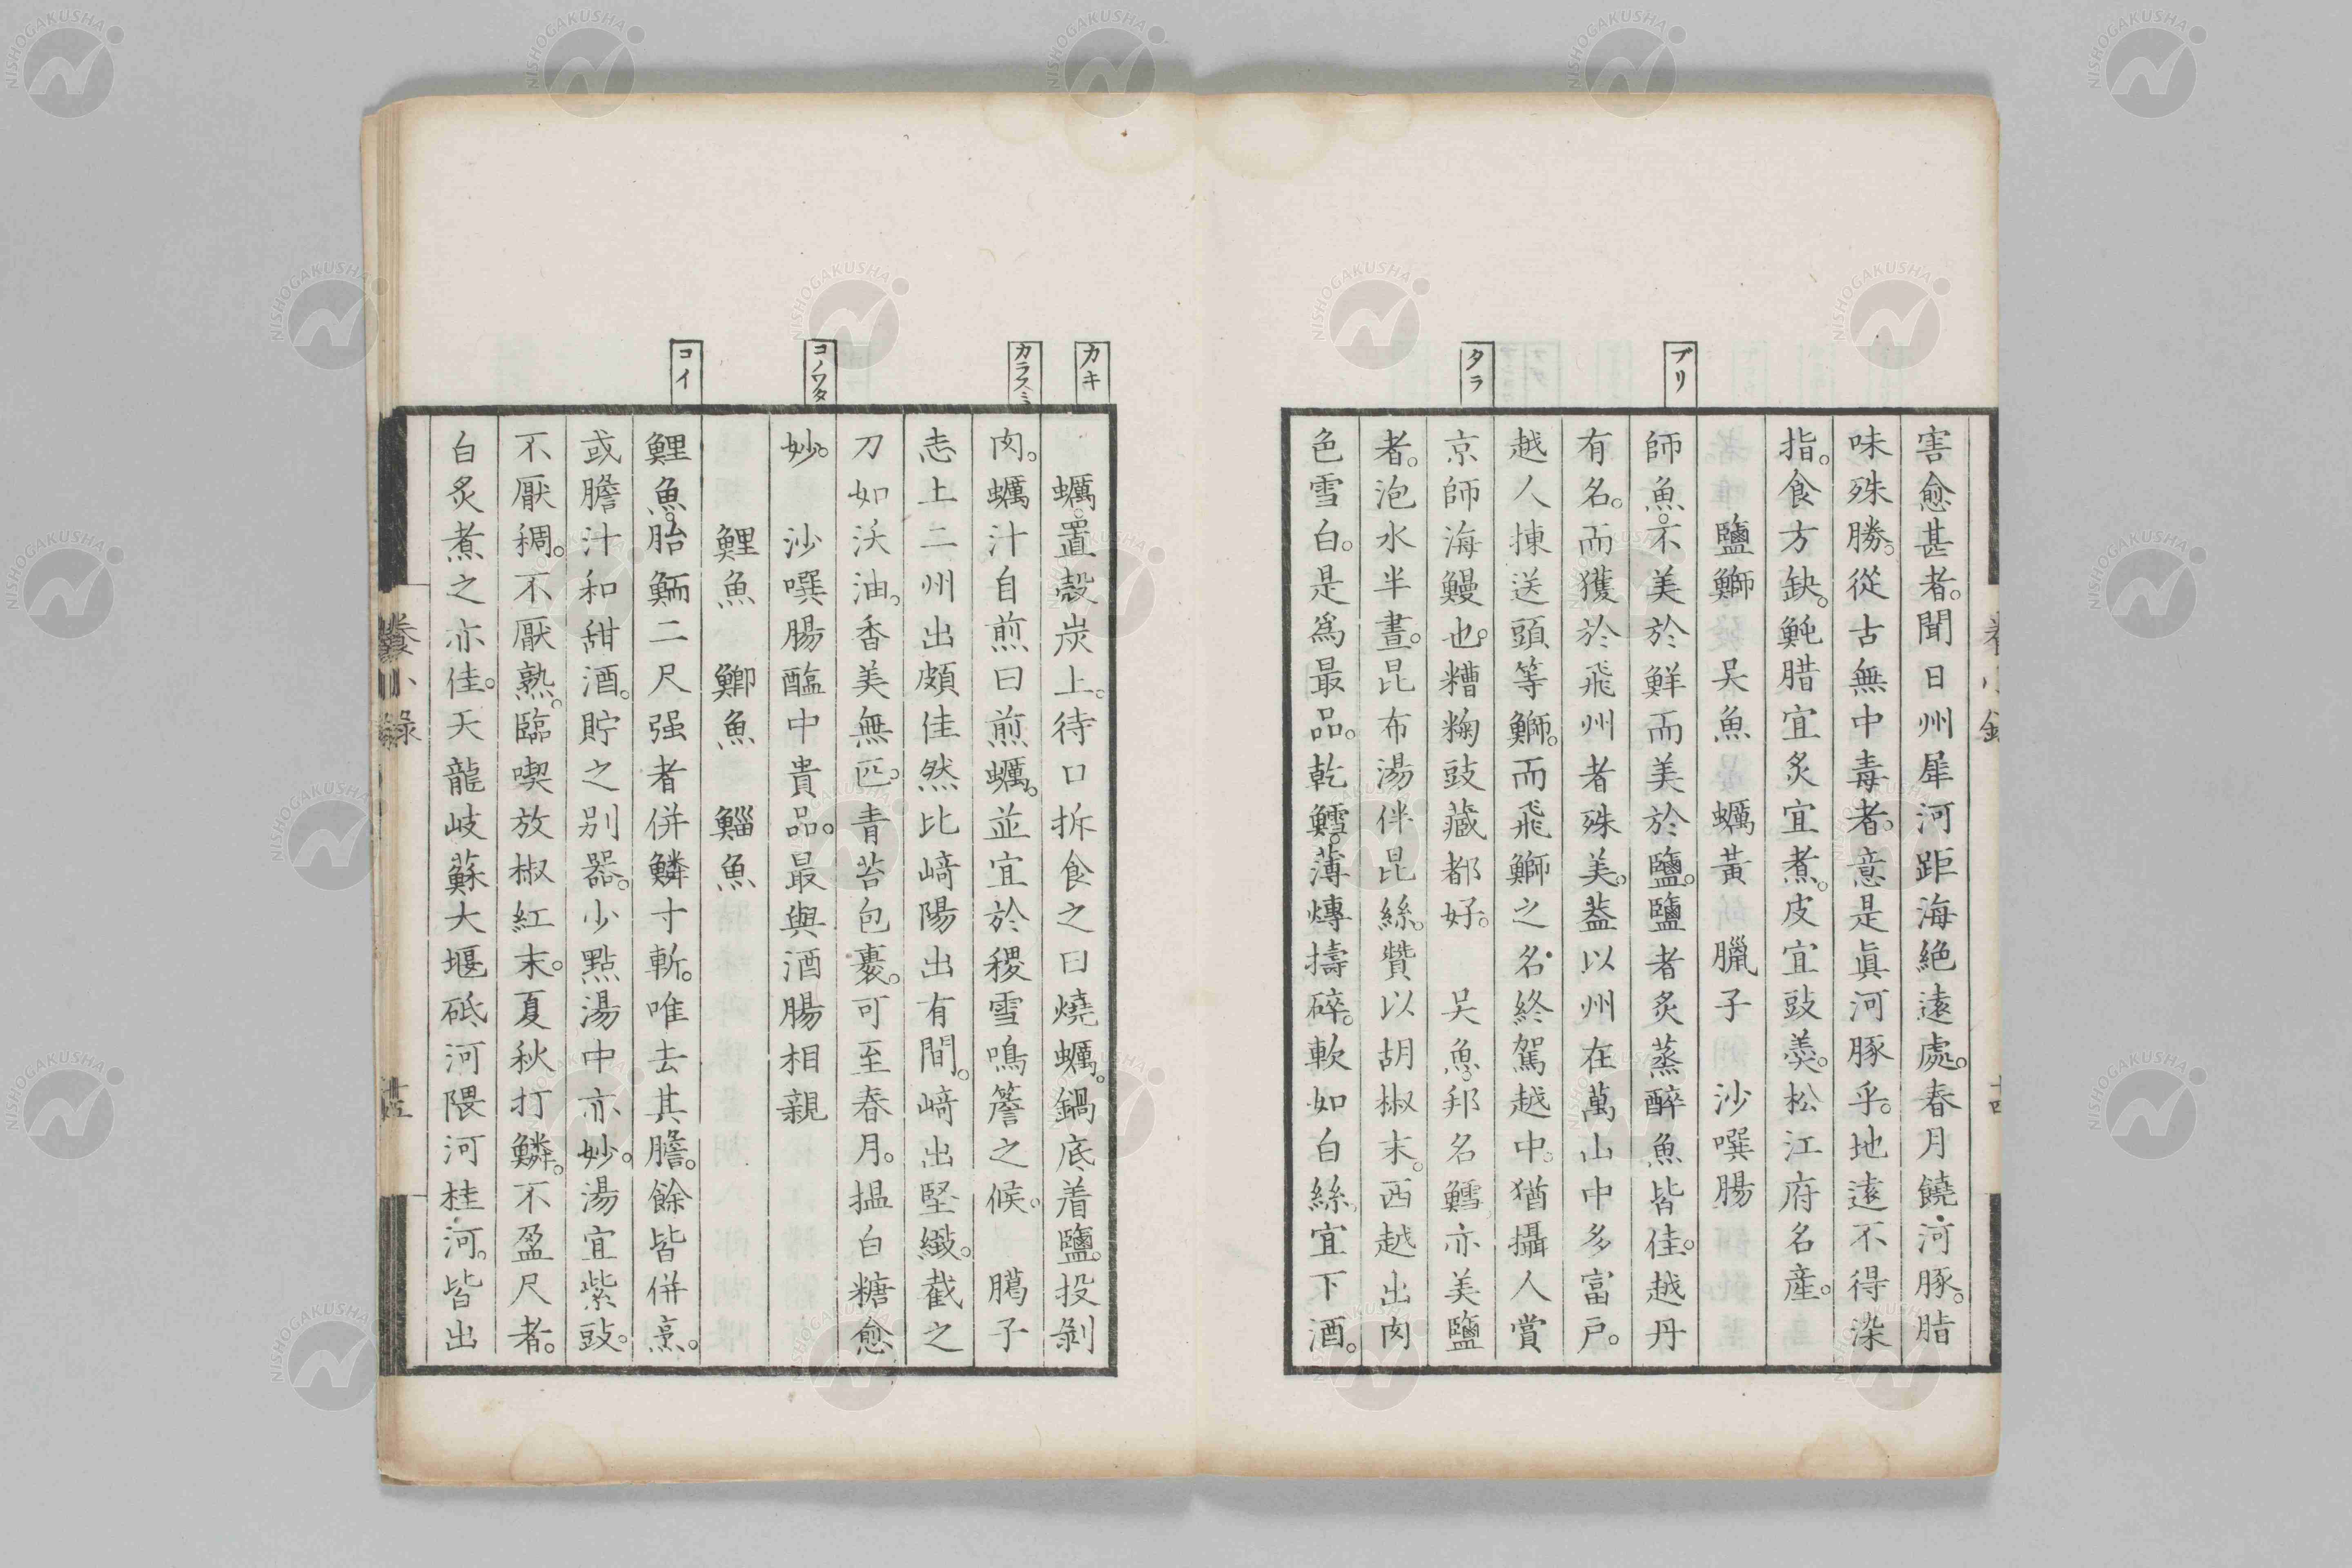 ブリ
タラ
害愈甚者。聞日州犀河距海絕遠處。春月饒河豚。脂
味殊勝。從古無中毒者。意是眞河豚乎。地遠不得染
指。食方缺。魨腊宜炙宜煮。皮宜豉羮。松江府名產。
鹽鰤 吴魚 蠣黃 臘子 沙噀腸
師魚。不美於鮮而美於鹽。鹽者炙蒸醉魚皆佳。越丹
有名。而獲於飛州者殊美。葢以州在萬山中多富戸。
越人揀送頭等鰤。而飛鰤之名終駕越中。猶攝人賞
京師海鰻也。糟麴豉藏都好。 吴魚。邦名鱈亦美鹽
者。泡水半晝。昆布湯伴昆絲。贊以胡椒末。西越出肉
色雪白。是爲最品。乾鱈。薄煿擣碎。軟如白絲。宜下酒。
カキ
カラスミ
コノワタ
コイ
蠣。置殼炭上。待口拆食之曰燒蠣。鍋底着鹽。投剝
肉。蠣汁自煎曰煎蠣。並宜於稷雪鳴簷之候。 臈子
志土二州出頗佳然比﨑陽出有間。﨑出堅緻。截之
刀如沃油。香美無匹。青苔包裹。可至春月。揾白糖愈
妙。 沙噀腸醢中貴品。最與酒腸相親
鯉魚 鯽魚 鯔魚
鯉魚。胎鮞二尺强者併鱗寸斬。唯去其膽。餘皆併烹。
或膽汁和甜酒。貯之别器。少點湯中亦妙。湯宜紫豉。
不厭稠。不厭熟。臨喫放椒紅末。夏秋打鱗。不盈尺者。
白炙煮之亦佳。天龍岐蘇大堰砥河隈河桂河。皆出
養小錄
十五